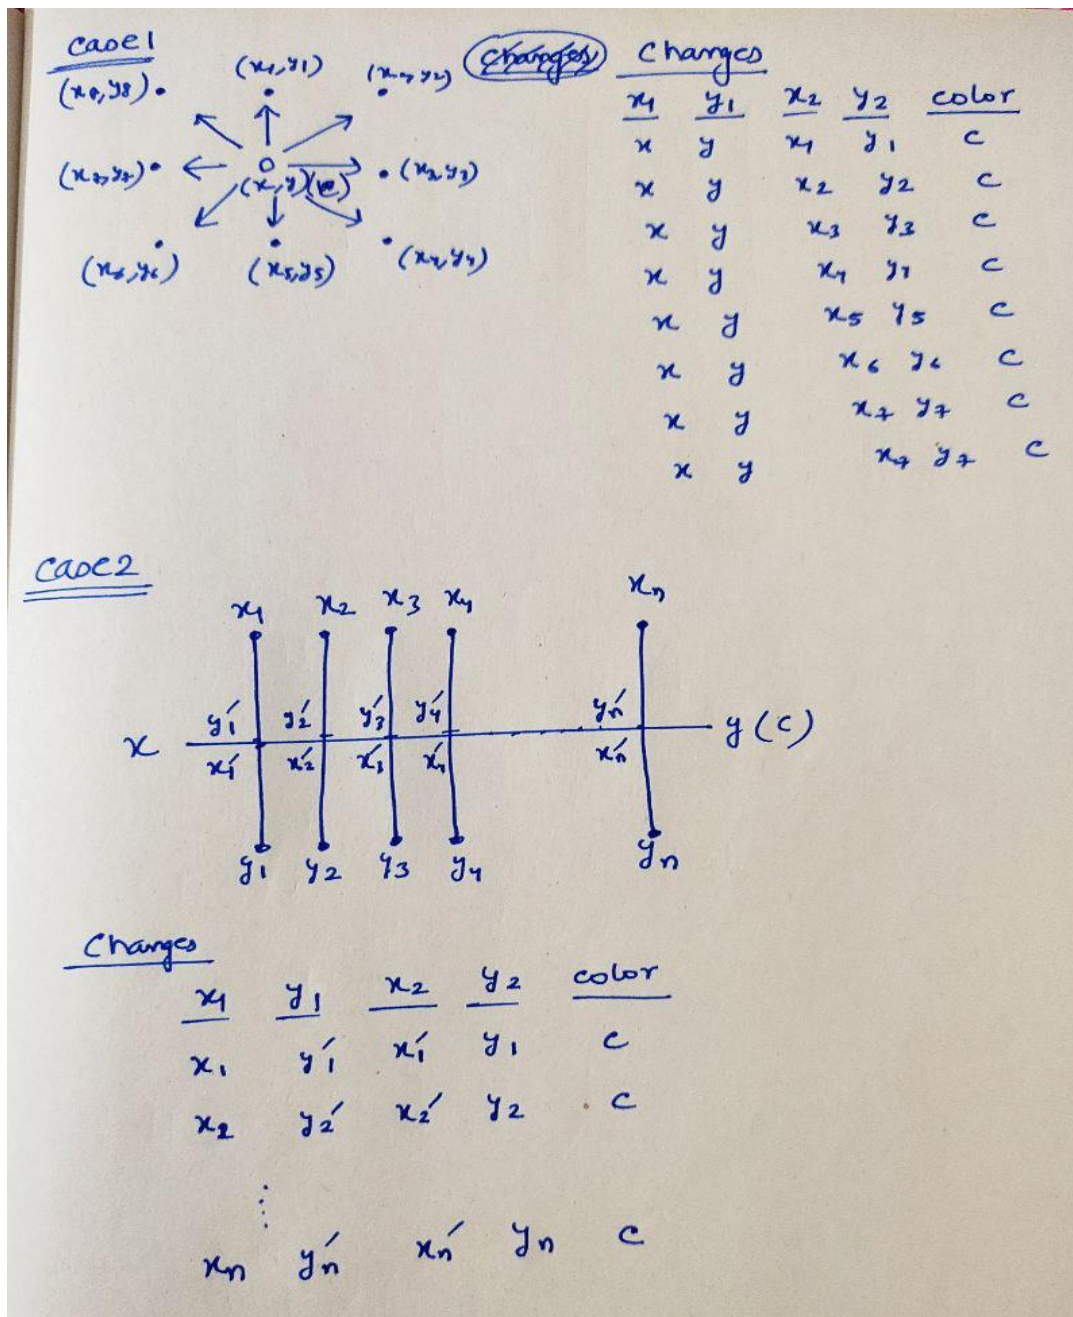 Case1
(x8,y8) (x1,y1) (x2,y2)
(x7,y7) (x,y)(c) (x3,y3)
(x6,y6) (x5,y5) (x4,y4)
Changes
Changes
x1 y1 x2 y2 color
x y x1 y1 c
x y x2 y2 c
x y x3 y3 c
x y x4 y4 c
x y x5 y5 c
x y x6 y6 c
x y x7 y7 c
x y x7 y7 c
Case2
x1 x2 x3 x4 xn
y1′ y2′ y3′ y4′ yn′
x y(c)
x1′ x2′ x3′ x4′ xn′
y1 y2 y3 y4 yn
Changes
x1 y1 x2 y2 color
x1 y1′ x1′ y1 c
x2 y2′ x2′ y2 c
⋮
xn yn′ xn′ yn c